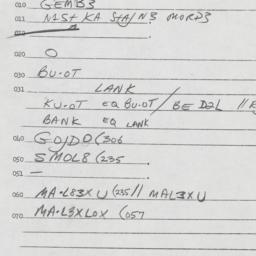 010 GEMB3
011 N1ST KA STA/N3 MORD3
020 O
030 BU.OT
031 LANK
KU.OT EQ BU.OT/ BE D2L //
BANK EQ LANK
040 GO/DO(306
050 SMOL8(235
051 —
060 MA.L83XU(235// MAL3XU
070 MA.L3XLOX (057